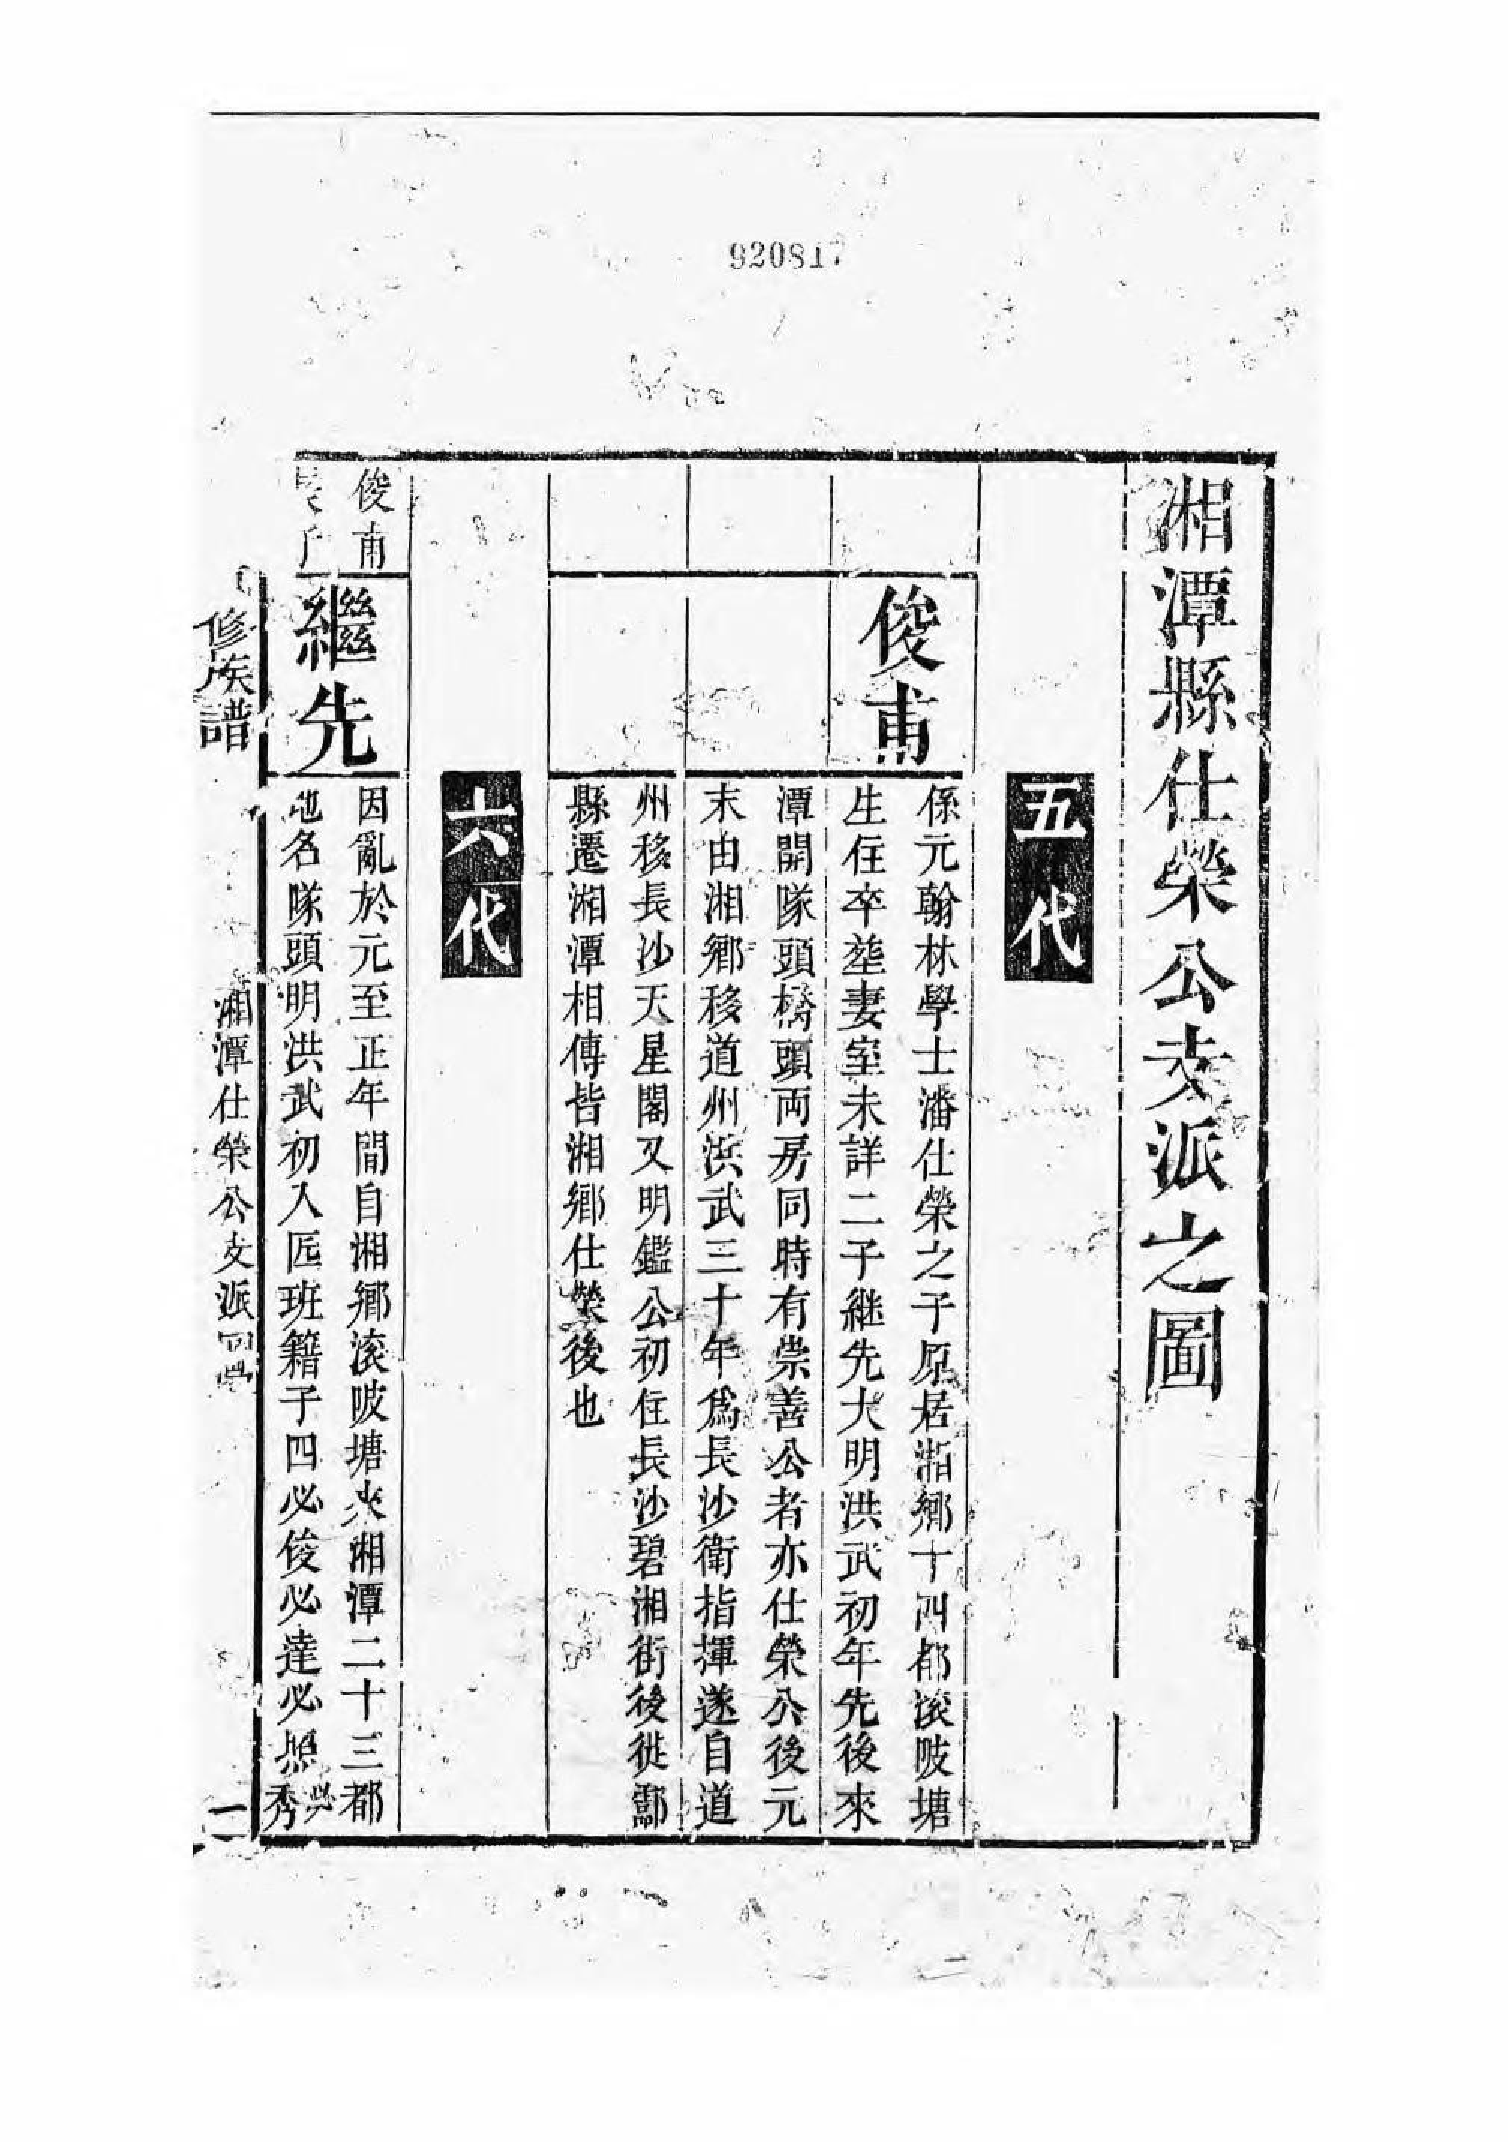 920817
湘潭縣仕榮公支派之圖
五代
俊甫
係元翰林學士潘仕榮之子原居湘鄉十四都滾陂塘
生住卒塟妻室未詳二子継先大明洪武初年先後來
潭開隊頭橋頭両房同時有崇善公者亦仕榮公後元
末由湘鄉移道州洪武三十年爲長沙衛指揮遂自道
州移長沙天星閣又明鑑公初住長沙碧湘街後徙酃
縣遷湘潭相傳皆湘鄉仕榮後也
六代
俊甫
長子
繼先
因亂於元至正年間自湘鄉滾陂塘來湘潭二十三都
地名隊頭明洪武初入匠班籍子四必俊必達必照必秀
修族譜
湘潭仕榮公支派
一